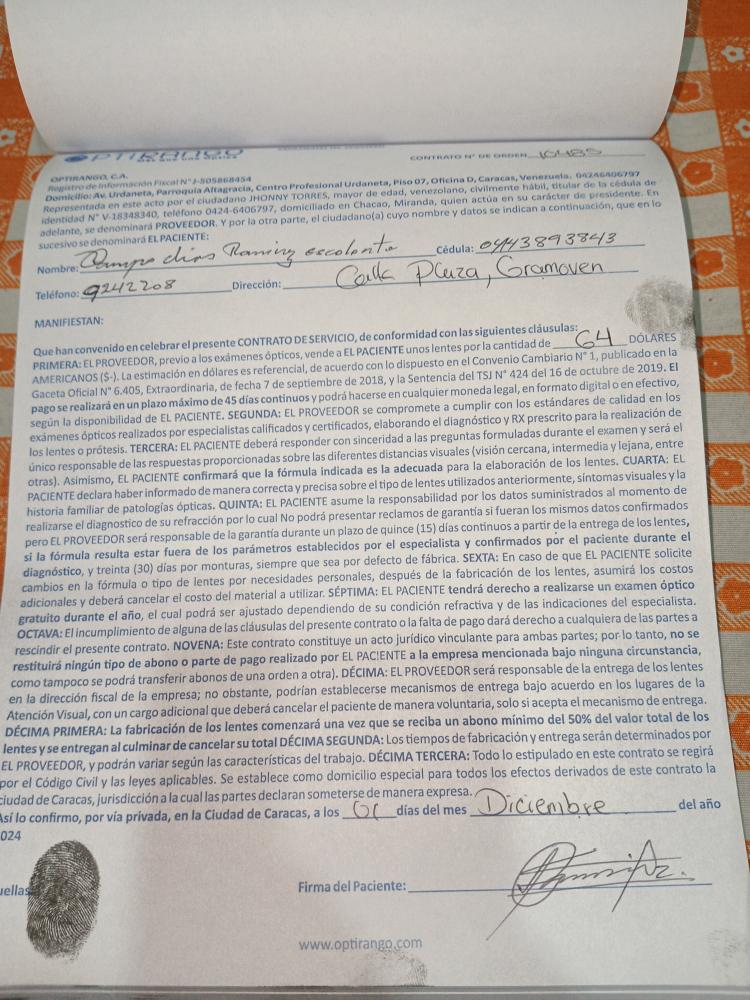 OPTIRANGO
CONTRATO Nº DE ORDEN 10485
OPTIRANGO, C.A.
Registro de Información Fiscal N° J-505868454
Domicilio: Av. Urdaneta, Parroquia Altagracia, Centro Profesional Urdaneta, Piso 07, Oficina D, Caracas, Venezuela. 04246406797
Representada en este acto por el ciudadano JHONNY TORRES, mayor de edad, venezolano, civilmente hábil, titular de la cédula de
identidad N° V-18348340, teléfono 0424-6406797, domiciliado en Chacao, Miranda, quien actúa en su carácter de presidente. En
adelante, se denominará PROVEEDOR. Y por la otra parte, el ciudadano(a) cuyo nombre y datos se indican a continuación, que en lo
sucesivo se denominará EL PACIENTE:
Nombre: Ramirez escalante Cédula: 04143893843
Teléfono: 9242208 Dirección: Calle Plaza, Gramoven
MANIFIESTAN:
Que han convenido en celebrar el presente CONTRATO DE SERVICIO, de conformidad con las siguientes cláusulas:
PRIMERA: EL PROVEEDOR, previo a los exámenes ópticos, vende a EL PACIENTE unos lentes por la cantidad de 64 DÓLARES
AMERICANOS ($-). La estimación en dólares es referencial, de acuerdo con lo dispuesto en el Convenio Cambiario N° 1, publicado en la
Gaceta Oficial N° 6.405, Extraordinaria, de fecha 7 de septiembre de 2018, y la Sentencia del TSJ N° 424 del 16 de octubre de 2019. El
pago se realizará en un plazo máximo de 45 días continuos y podrá hacerse en cualquier moneda legal, en formato digital o en efectivo,
según la disponibilidad de EL PACIENTE. SEGUNDA: EL PROVEEDOR se compromete a cumplir con los estándares de calidad en los
exámenes ópticos realizados por especialistas calificados y certificados, elaborando el diagnóstico y RX prescrito para la realización de
los lentes o prótesis. TERCERA: EL PACIENTE deberá responder con sinceridad a las preguntas formuladas durante el examen y será el
único responsable de las respuestas proporcionadas sobre las diferentes distancias visuales (visión cercana, intermedia y lejana, entre
otras). Asimismo, EL PACIENTE confirmará que la fórmula indicada es la adecuada para la elaboración de los lentes. CUARTA: EL
PACIENTE declara haber informado de manera correcta y precisa sobre el tipo de lentes utilizados anteriormente, síntomas visuales y la
historia familiar de patologías ópticas. QUINTA: EL PACIENTE asume la responsabilidad por los datos suministrados al momento de
realizarse el diagnostico de su refracción por lo cual No podrá presentar reclamos de garantía si fueran los mismos datos confirmados
pero EL PROVEEDOR será responsable de la garantía durante un plazo de quince (15) días continuos a partir de la entrega de los lentes,
si la fórmula resulta estar fuera de los parámetros establecidos por el especialista y confirmados por el paciente durante el
diagnóstico, y treinta (30) días por monturas, siempre que sea por defecto de fábrica. SEXTA: En caso de que EL PACIENTE solicite
cambios en la fórmula o tipo de lentes por necesidades personales, después de la fabricación de los lentes, asumirá los costos
adicionales y deberá cancelar el costo del material a utilizar. SÉPTIMA: EL PACIENTE tendrá derecho a realizarse un examen óptico
gratuito durante el año, el cual podrá ser ajustado dependiendo de su condición refractiva y de las indicaciones del especialista.
OCTAVA: El incumplimiento de alguna de las cláusulas del presente contrato o la falta de pago dará derecho a cualquiera de las partes a
rescindir el presente contrato. NOVENA: Este contrato constituye un acto jurídico vinculante para ambas partes; por lo tanto, no se
restituirá ningún tipo de abono o parte de pago realizado por EL PACIENTE a la empresa mencionada bajo ninguna circunstancia,
como tampoco se podrá transferir abonos de una orden a otra). DÉCIMA: EL PROVEEDOR será responsable de la entrega de los lentes
en la dirección fiscal de la empresa; no obstante, podrían establecerse mecanismos de entrega bajo acuerdo en los lugares de la
Atención Visual, con un cargo adicional que deberá cancelar el paciente de manera voluntaria, solo si acepta el mecanismo de entrega.
DÉCIMA PRIMERA: La fabricación de los lentes comenzará una vez que se reciba un abono mínimo del 50% del valor total de los
lentes y se entregan al culminar de cancelar su total DÉCIMA SEGUNDA: Los tiempos de fabricación y entrega serán determinados por
EL PROVEEDOR, y podrán variar según las características del trabajo. DÉCIMA TERCERA: Todo lo estipulado en este contrato se regirá
por el Código Civil y las leyes aplicables. Se establece como domicilio especial para todos los efectos derivados de este contrato la
ciudad de Caracas, jurisdicción a la cual las partes declaran someterse de manera expresa.
Así lo confirmo, por vía privada, en la Ciudad de Caracas, a los días del mes Diciembre del año
024
uellas
Firma del Paciente:
www.optirango.com